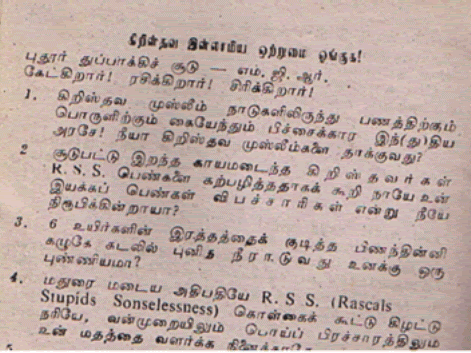 கிறிஸ்தவ இஸ்லாமிய ஒற்றுமை ஓங்குக!
புதூர் துப்பாக்கிச் சூடு — எம். ஜி. ஆர்.
கேட்கிறார்! ரசிக்கிறார்! சிரிக்கிறார்!
1. கிறிஸ்தவ முஸ்லீம் நாடுகளிலிருந்து பணத்திற்கும்
பொருளிற்கும் கையேந்தும் பிச்சைக்கார இந்(து)திய
அரசே! நீயா கிறிஸ்தவ முஸ்லீம்களை தாக்குவது?
2 சூடுபட்டு இறந்த காயமடைந்த கிறிஸ்தவர்கள்
R. S. S. பெண்களை கற்பழித்ததாகக் கூறி நாயே உன்
இயக்கப் பெண்கள் விபச்சாரிகள் என்று நீயே
நிரூபிக்கின்றாயா?
3. 6 உயிர்களின் இரத்தத்தைக் குடித்த பிணந்தின்னி
கழுகே கடலில் புனித நீராடுவது உனக்கு ஒரு
புண்ணியமா?
4. மதுரை மடைய அதிபதியே R. S. S. (Rascals
Stupids Sonselessness) கொள்கைக் கூட்டு கிழட்டு
நரியே, வன்முறையிலும் பொய்ப் பிரச்சாரத்திலும்
உன் மதத்தை வளர்க்க நினைக்காதே
5